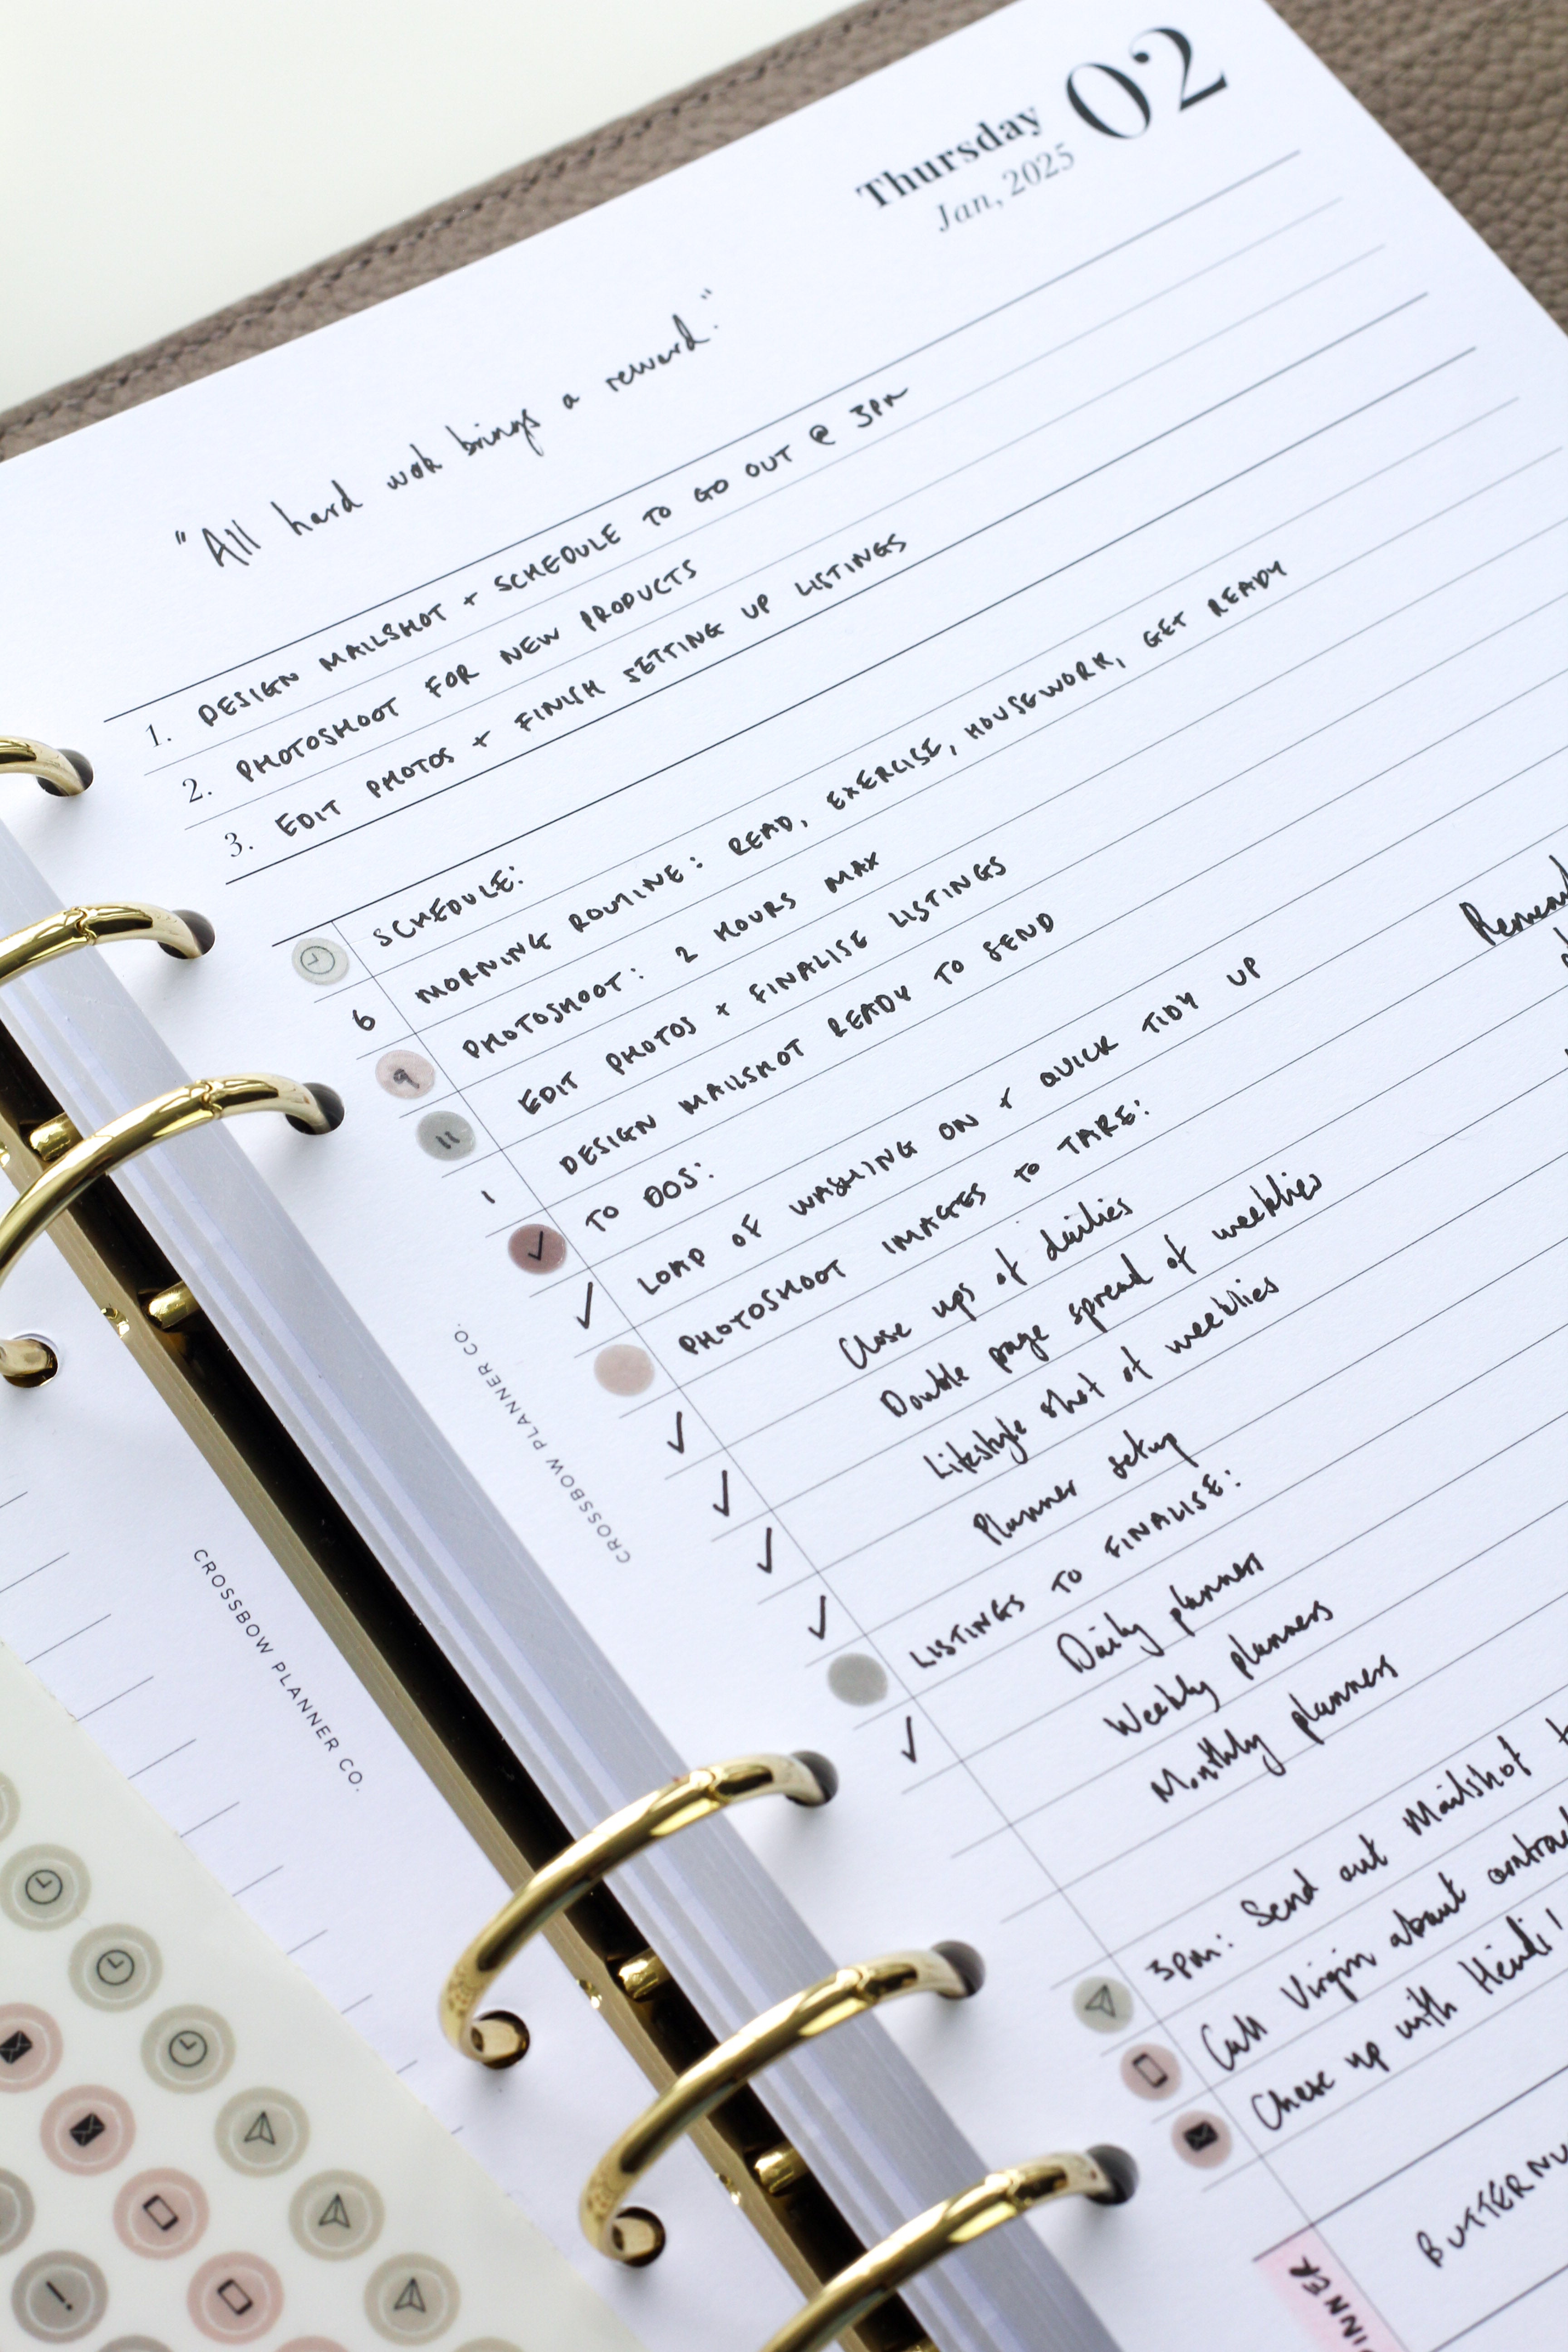 Thursday 02
Jan, 2025
"All hard wok brings a reward."
1. DESIGN MAILSHOT + SCHEDULE TO GO OUT @ 3PM
2. PHOTOSHOOT FOR NEW PRODUCTS
3. EDIT PHOTOS + FINISH SETTING UP LISTINGS
SCHEDULE:
6 MORNING ROUTINE: READ, EXERCISE, HOUSEWORK, GET READY
9 PHOTOSHOOT: 2 HOURS MAX
11 EDIT PHOTOS + FINALISE LISTINGS
1 DESIGN MAILSHOT READY TO SEND
✓ TO DOS:
✓ LOAD OF WASHING ON + QUICK TIDY UP
PHOTOSHOOT IMAGES TO TAKE:
✓ Close ups of dailies
✓ Double page spread of weeklies
✓ Lifestyle shot of weeklies
✓ Planner setup
LISTINGS TO FINALISE:
✓ Daily planners
Weekly planners
Monthly planners
3pm: Send out Mailshot
Call Virgin about
Chase up with Heidi!
CROSSBOW PLANNER CO.
CROSSBOW PLANNER CO.